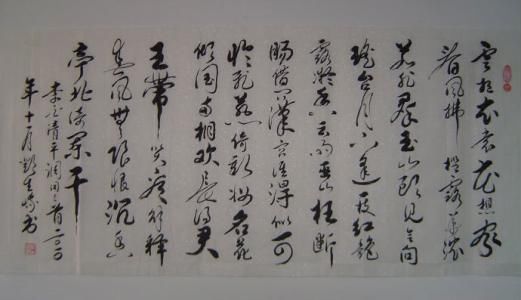 雲想衣裳花想容
春風拂檻露華濃
若非群玉山頭見會向
瑤台月下逢一枝紅艷
露凝香雲雨巫山枉斷
腸借問漢宮誰得似可
憐飛燕倚新妝名花
傾国両相歡長得君
王帶笑看解釋
春風無限恨沉香
亭北倚闌干
李白清平調词三首二〇
年十一月書